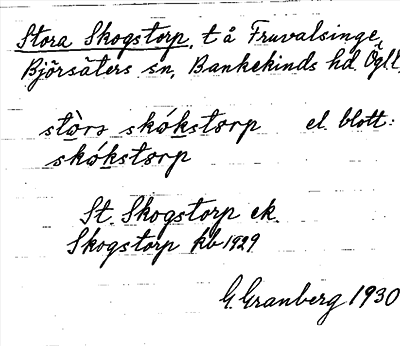 Stora Skogstorp, t å Fruvalsinge,
Björsäters sn, Bankekinds hd. Ögl.
stòrə skókstɔrp el. blott:
skókstɔrp
St. Skogstorp ek.
Skogstorp kb 1929
G. Granberg 1930